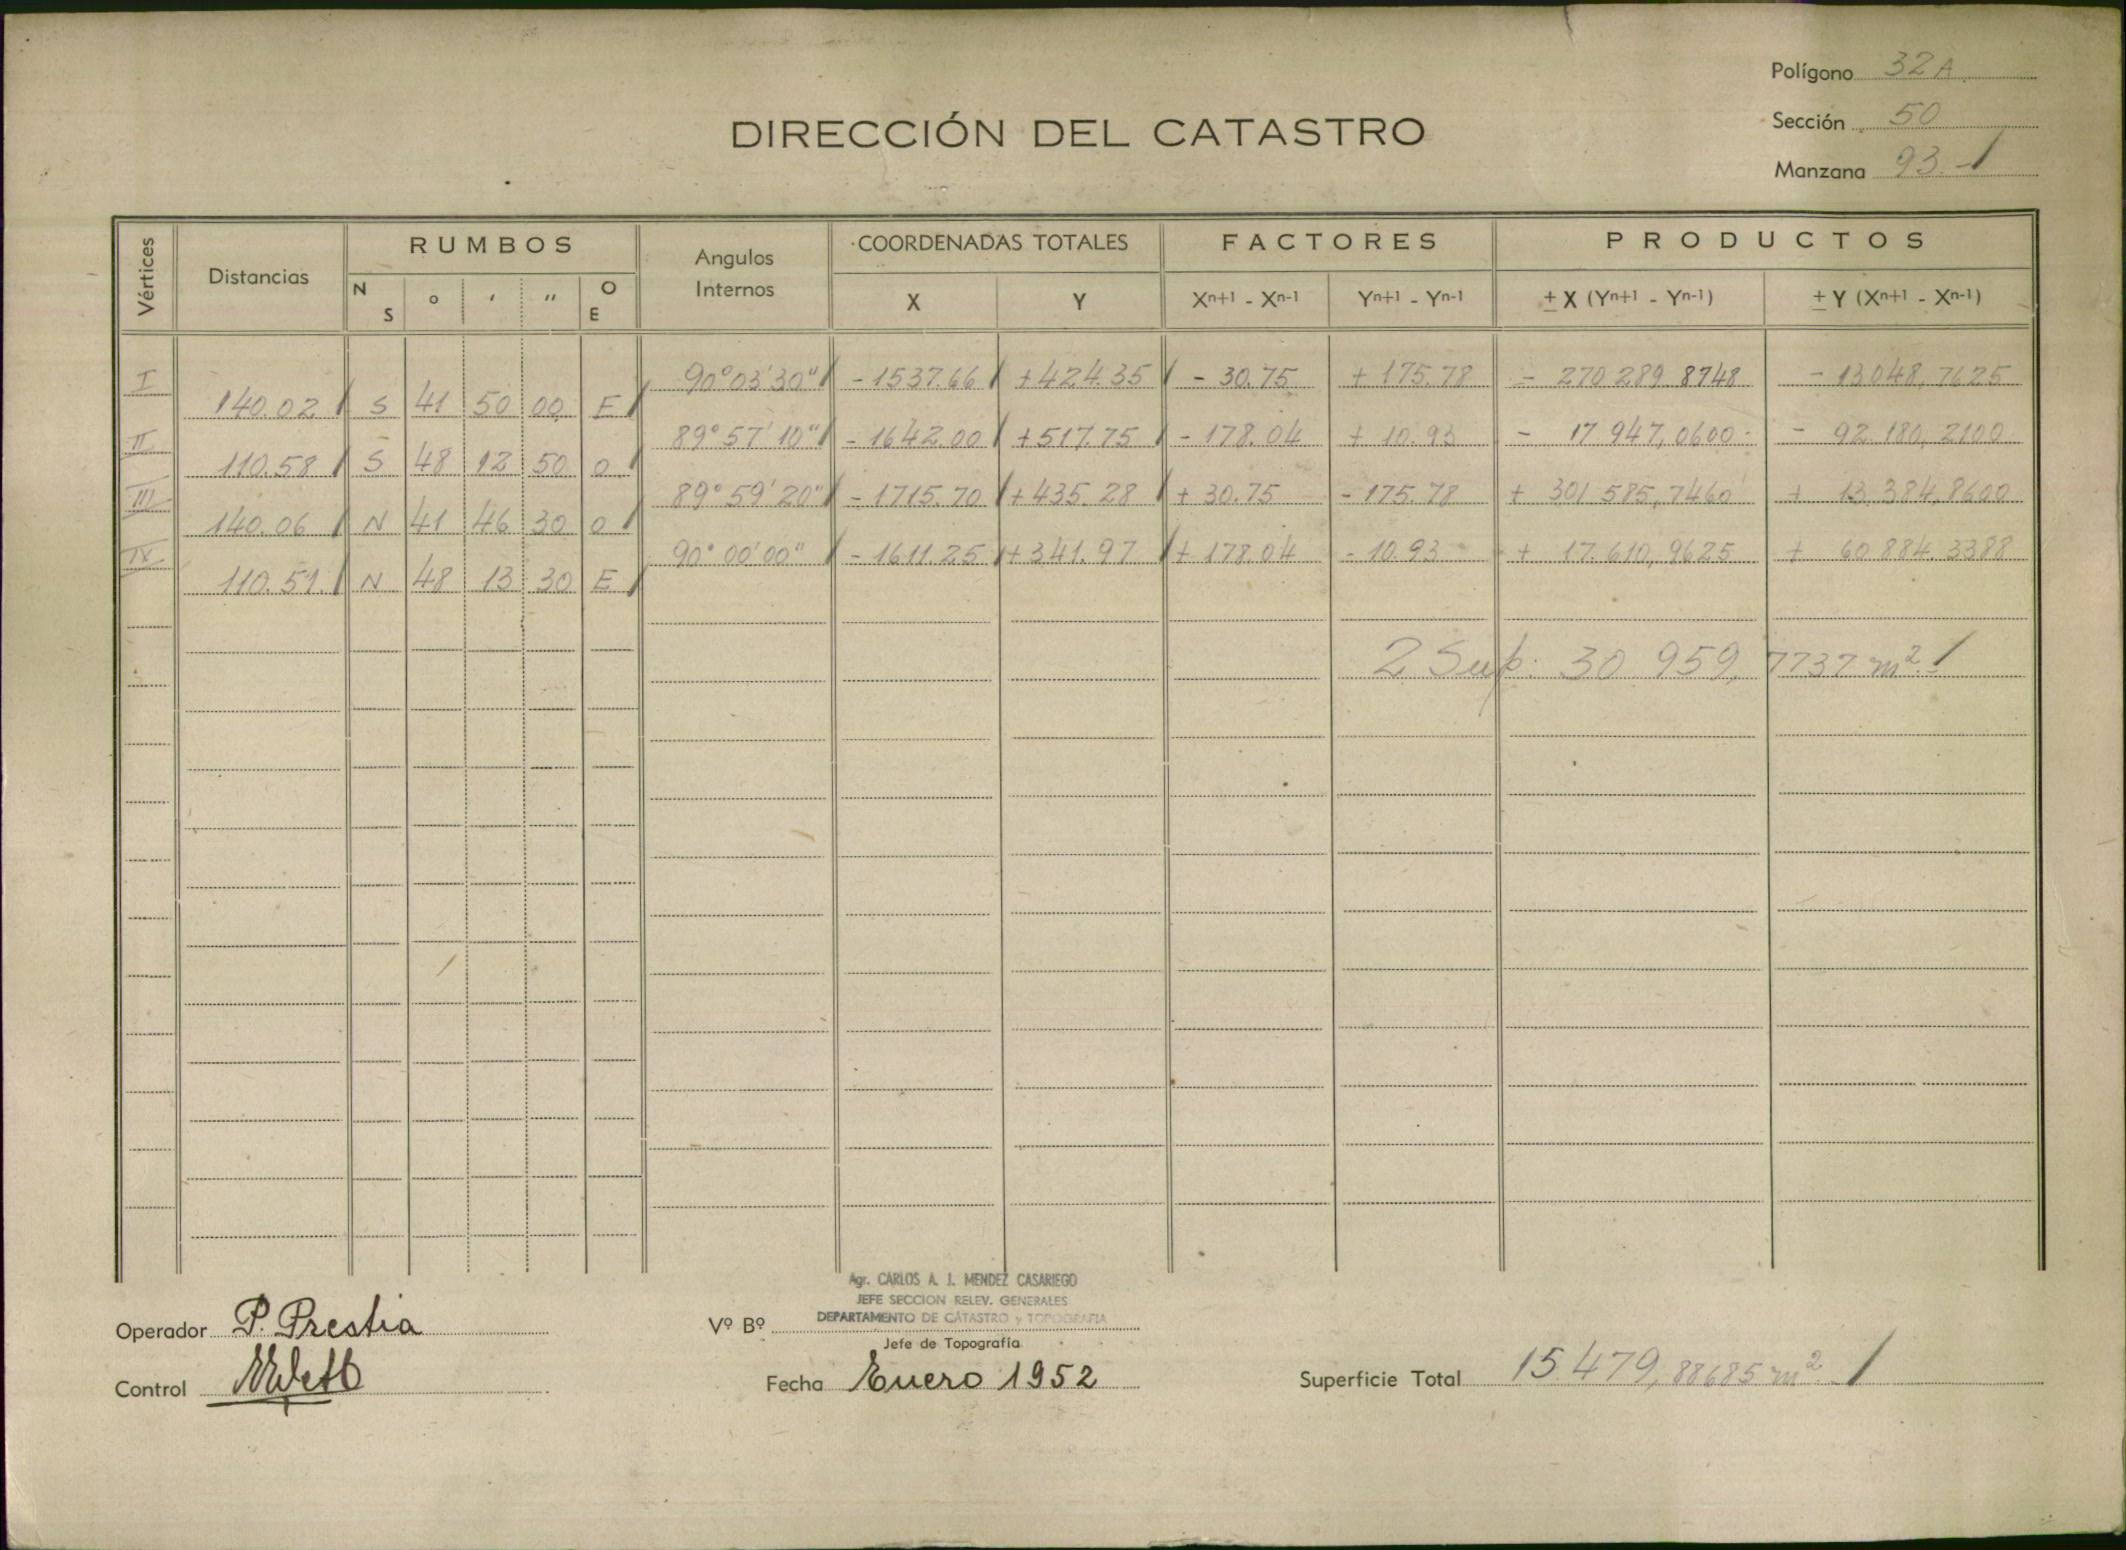 Polígono 32 A
Sección 50
Manzana 93.-/
DIRECCIÓN DEL CATASTRO
Vértices Distancias RUMBOS Angulos Internos COORDENADAS TOTALES FACTORES PRODUCTOS
N S ° ' '' O E X Y Xn+1 - Xn-1 Yn+1 - Yn-1 ± X (Yn+1 - Yn-1) ± Y (Xn+1 - Xn-1)
I 90° 03' 30" - 1537.66 + 424.35 - 30.75 + 175.78 - 270 289 8748 - 13 048, 7625
140.02 S 41 50 00 E
II 89° 57' 10" - 1642.00 + 517.75 - 178.04 + 10.93 - 17 947, 0600 - 92 180, 2100
110.58 S 48 12 50 O
III 89° 59' 20" - 1715.70 + 435.28 + 30.75 - 175.78 + 301 585, 7460 + 13 384, 8600
140.06 N 41 46 30 O
IV 90° 00' 00" - 1611.25 + 341.97 + 178.04 - 10.93 + 17.610, 9625 + 60 884. 3388
110.51 N 48 13 30 E
2 Sup: 30 959, 7737 m².-/
Agr. CARLOS A. J. MENDEZ CASARIEGO
JEFE SECCION RELEV. GENERALES
DEPARTAMENTO DE CATASTRO y TOPOGRAFIA
Operador P. Prestia Vº Bº
Jefe de Topografía
Control Fecha Enero 1952 Superficie Total 15.479, 88685 m².-/